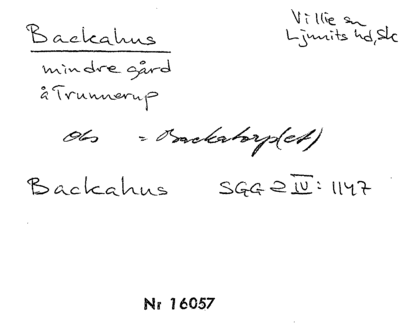 Backahus
Villie sn
Ljunits hd, Sk
mindre gård
å Trunnerup
Obs = Backatorp(et)
Backahus SGG 2 IV: 1147
Nr 16057